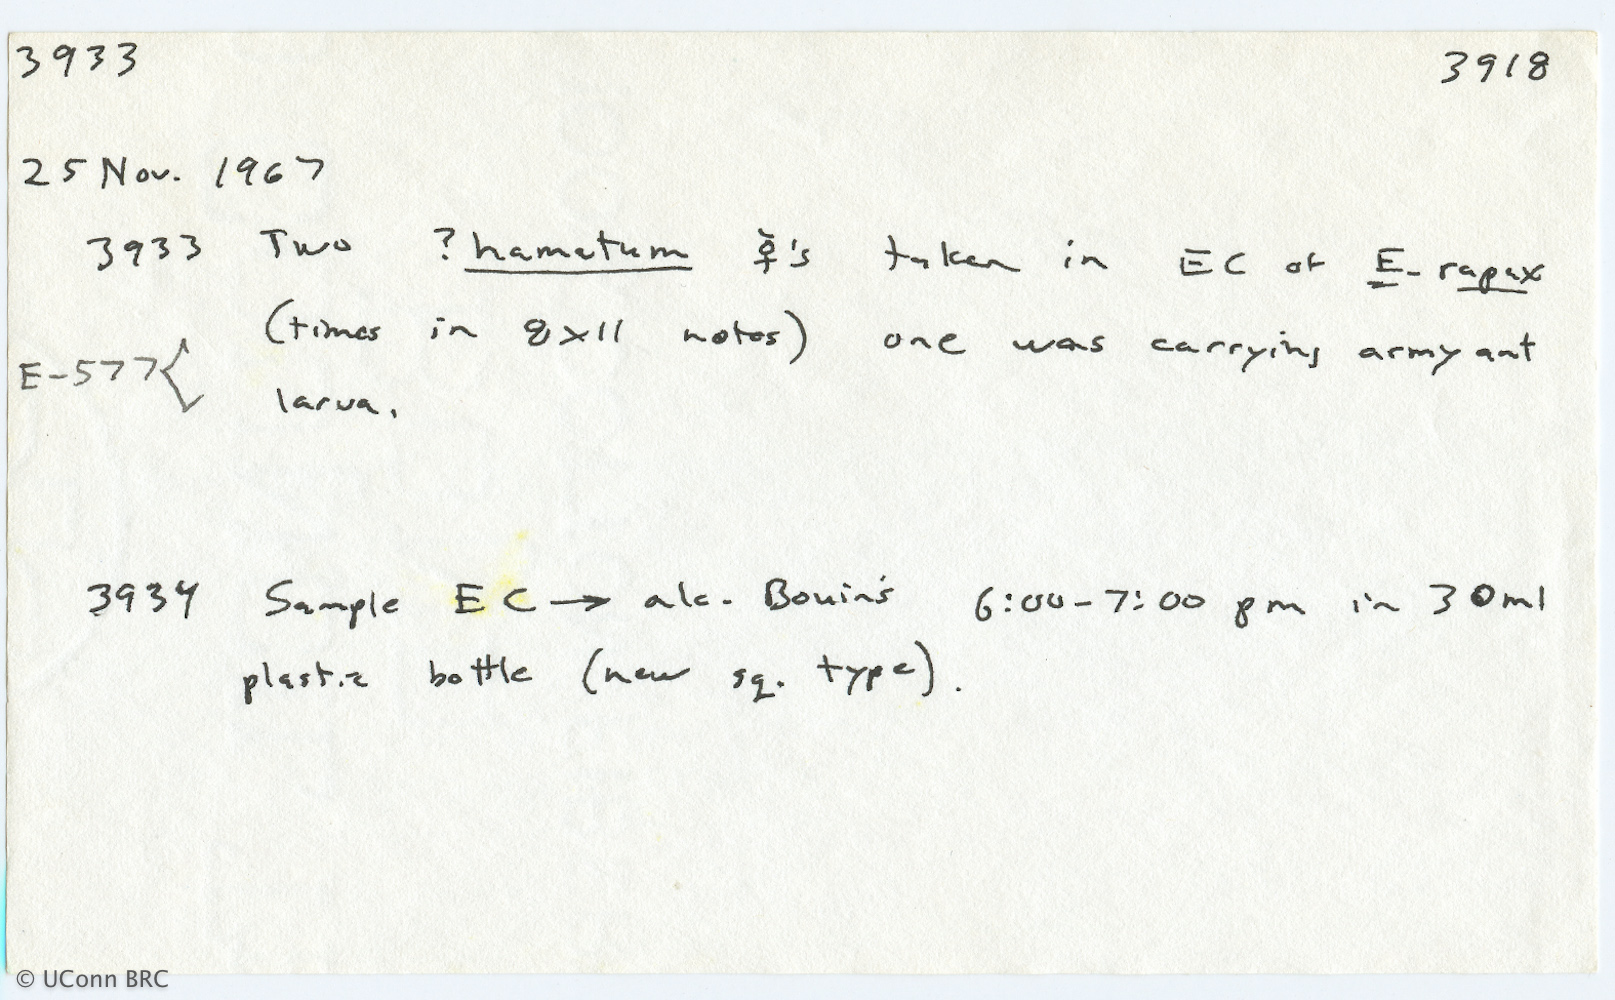 3933 3918
25 Nov. 1967
3933 Two ? hamatum ☿'s taken in EC of E. rapax
(times in 8x11 notes) one was carrying army ant
E-577 {
larva.
3934 Sample EC → alc. Bouin's 6:00-7:00 pm in 30ml
plastic bottle (new sq. type).
© UConn BRC